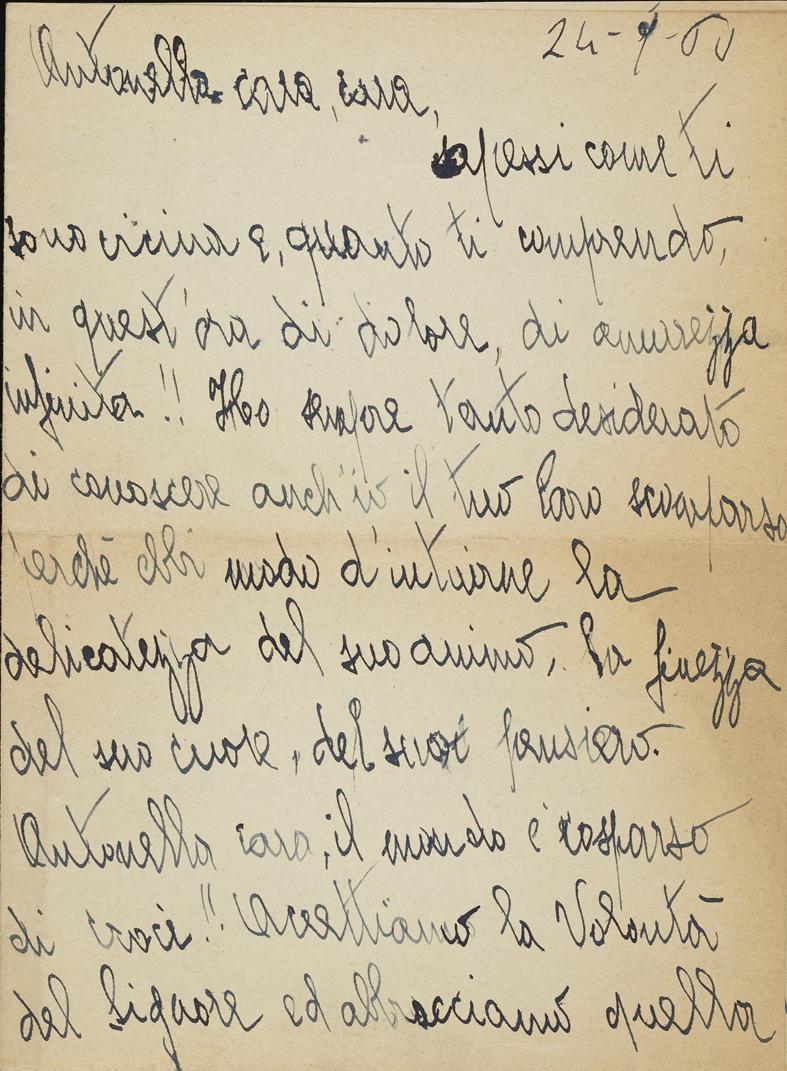 24-9-60
Antonella cara, cara,
sapessi come ti
sono vicina e, quanto ti comprendo,
in quest'ora di dolore, di amarezza
infinita!! Ho sempre tanto desiderato
di conoscere anch'io il tuo Caro scomparso
perchè ebbi modo d'intuirne la
delicatezza del suo animo, la finezza
del suo cuore, del suo pensiero.
Antonella cara, il mondo è cosparso
di croci!! Accettiamo la Volontà
del Signore ed abbracciamo quella